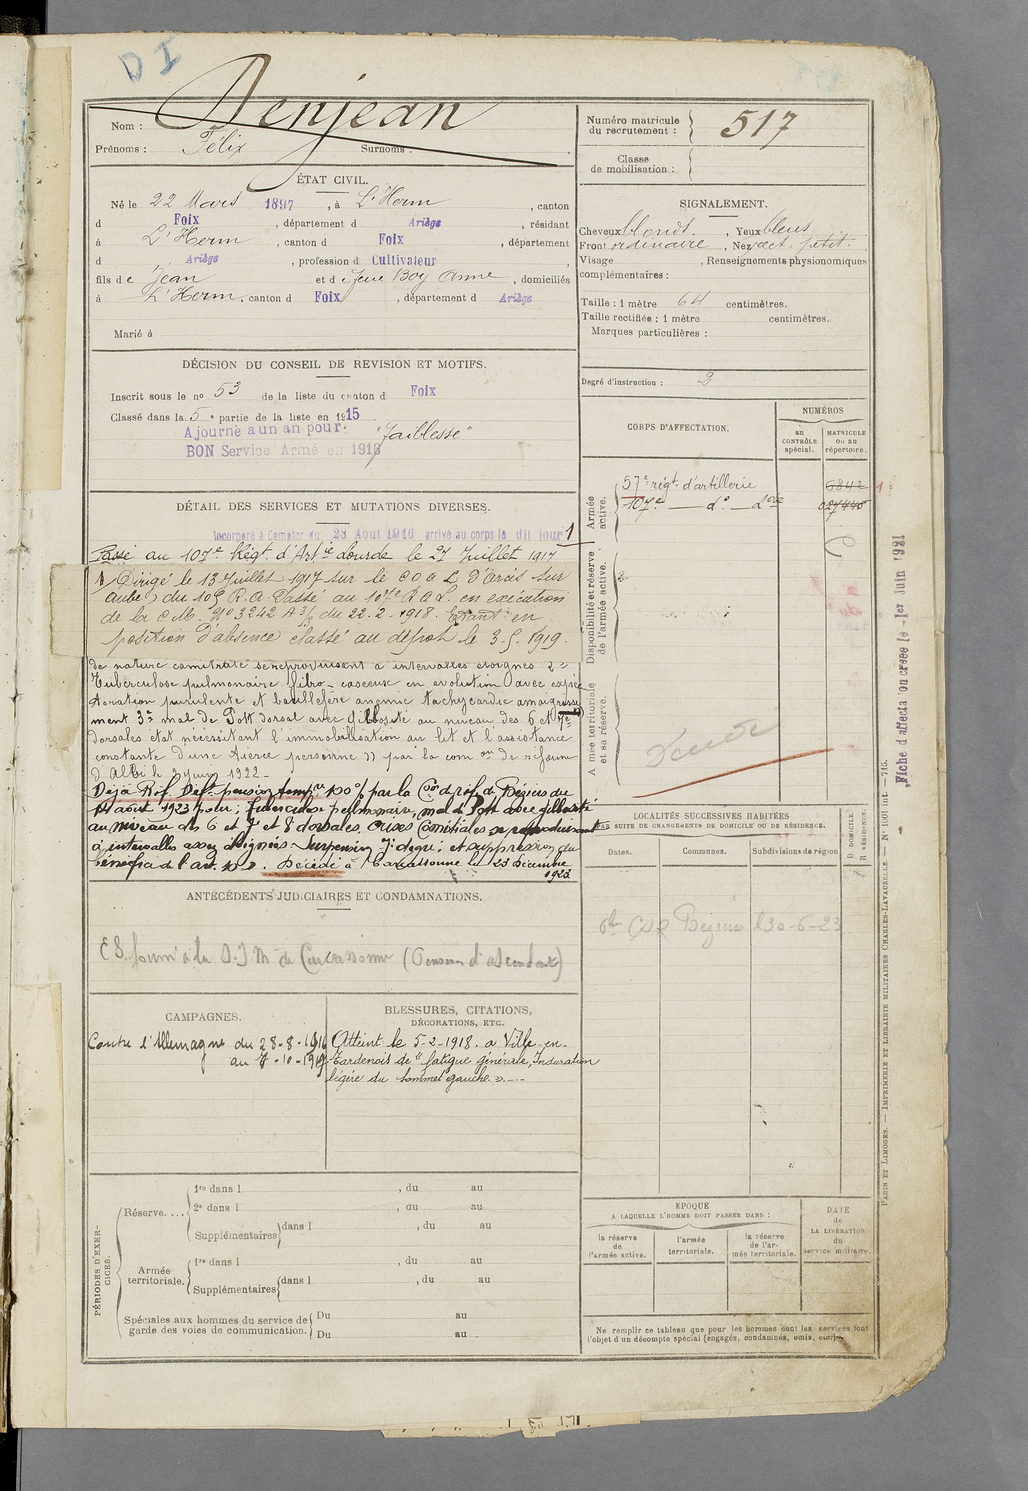 DI
Nom : Denjean
Prénoms : Félix Surnoms :
ÉTAT CIVIL.
Né le 22 Mars 1897, à L'Herm, canton
d Foix, département d Ariège, résidant
à L'Herm, canton d Foix, département
d Ariège, profession d Cultivateur,
fils de Jean et de feue Boy Anne, domiciliés
à L'Herm, canton d Foix, département d Ariège
Marié à
DÉCISION DU CONSEIL DE REVISION ET MOTIFS.
Inscrit sous le no 53 de la liste du canton d Foix
Classé dans la 5e partie de la liste en 1915.
Ajourné à un an pour: "faiblesse"
BON Service Armé en 1916
DÉTAIL DES SERVICES ET MUTATIONS DIVERSES.
Incorporé à Compter du 28 Aout 1916 arrivé au corps le dit jour 1
Passé au 107e Régt d'Artie lourde le 27 Juillet 1917
Dirigé le 13 Juillet 1917 sur le C O A L D'Arcis sur
aube du 109 R.A. Passé au 107e R A L. en exécution
de la C.M. No 3242 A 3/3 du 22-2-1918. Etant en
position d'absence classé au dépôt le 3-9-1919.
de nature comitiale se reproduisant à intervalles éloignés 2e
Tuberculose pulmonaire fibro-caséeuse en évolution avec expec-
toration purulente et bacillifère anémie tachycardie amaigrisse
ment 3e mal de Pott dorsal avec gibbosité au niveau des 6 et 7e
dorsales état nécessitant l'immobilisation au lit et l'assistance
constante d'une tierce personne )) par la comon de réforme
d'Albi le 2 juin 1922-
Déjà Réf. Déf. pension tempre 100% par la Con de réf. de Béziers du
août 1923 pour; Tuberculose pulmonaire, mal de Pott avec gibbosité
au niveau des 6 et 7e et 8 dorsales. Crises Comitiales se reproduisant
à intervalles assez éloignés - et suppression du
bénéfice de l'art. 10. Décédé à Carcassonne le 23 Décembre
1923
ANTÉCÉDENTS JUDICIAIRES ET CONDAMNATIONS.
ES fourni à la S.I.M de Carcassonne (Pension d'ascendant)
CAMPAGNES.
Contre l'Allemagne du 28-8-1916
au 7-10-1919
BLESSURES, CITATIONS,
DÉCORATIONS, ETC.
Atteint le 5-2-1918. a Ville-en-
Tardenois de "fatigue générale, Induration
légère du sommet gauche."
PÉRIODES D'EXER-
CICES.
Réserve....
1re dans l , du au
2e dans l , du au
Supplémentaires dans l , du au
Armée
territoriale.
1re dans l , du au
Supplémentaires dans l , du au
Spéciales aux hommes du service de
garde des voies de communication.
Du au
Du au
Numéro matricule
du recrutement : 517
Classe
de mobilisation :
SIGNALEMENT.
Cheveux blonds. , Yeux bleus
Front ordinaire , Nez rect. petit.
Visage , Renseignements physionomiques
complémentaires :
Taille : 1 mètre 64 centimètres.
Taille rectifiée : 1 mètre centimètres.
Marques particulières :
Degré d'instruction : 3
CORPS D'AFFECTATION.
NUMÉROS
au
CONTRÔLE
spécial.
MATRICULE
ou au
répertoire.
Armée
active.
57e régt d'artillerie 6842
107e — do — Lourde
Disponibilité et réserve
de l'armée active.
Armée territoriale
et sa réserve.
LOCALITÉS SUCCESSIVES HABITÉES
PAR SUITE DE CHANGEMENTS DE DOMICILE OU DE RÉSIDENCE.
Dates. Communes. Subdivisions de région
D DOMICILE
R RÉSIDENCE.
CSR Béziers 30-6-23
EPOQUE
A LAQUELLE L'HOMME DOIT PASSER DANS :
la réserve
de
l'armée active.
l'armée
territoriale.
la réserve
de l'ar-
mée territoriale.
DATE
de
LA LIBÉRATION
du
service militaire.
Ne remplir ce tableau que pour les hommes dont les services font
l'objet d'un décompte spécial (engagés, condamnés, omis, etc.).
PARIS ET LIMOGES. — IMPRIMERIE ET LIBRAIRIE MILITAIRES CHARLES-LAVAUZELLE. — No 1001 int. — 715.
Fiche d'affectation créée le 1er Juin 1921